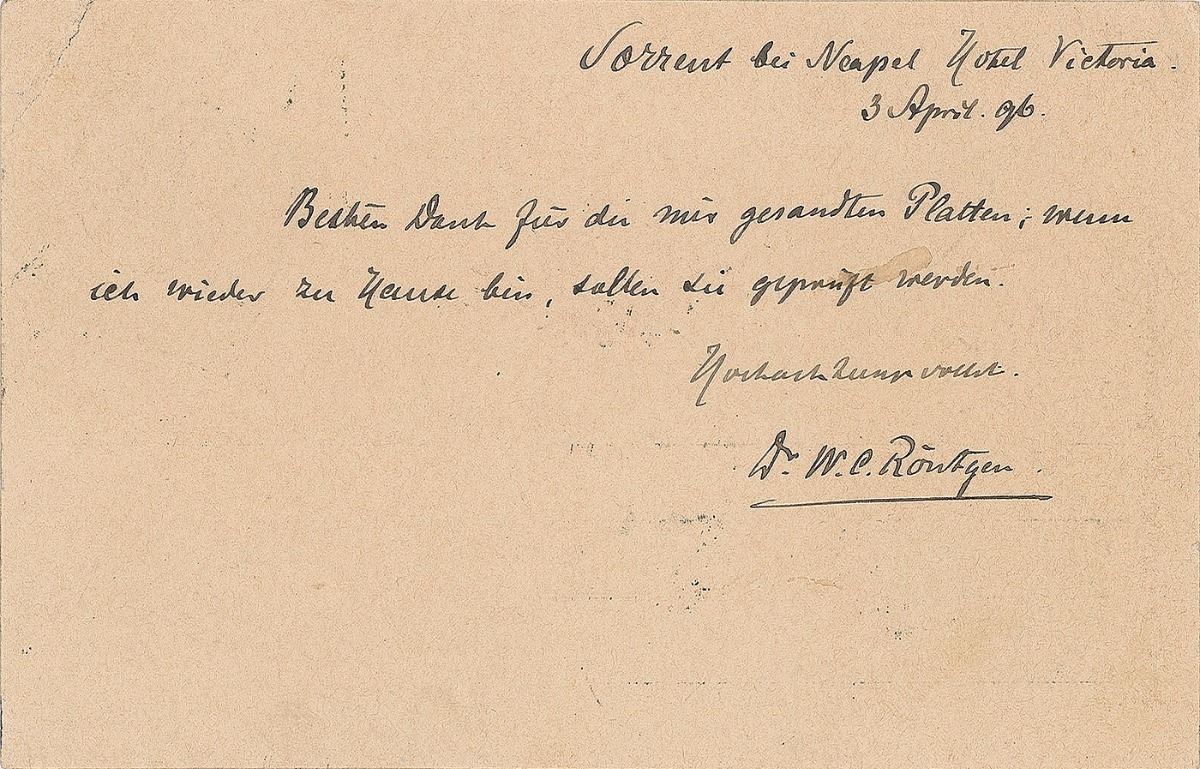 Sorrent bei Neapel Hotel Victoria.
3 April. 96.
Besten Dank für die mir gesandten Platten; wenn
ich wieder zu Hause bin, sollen sie geprüft werden.
Hochachtungsvollst.
Dr W. C. Röntgen.